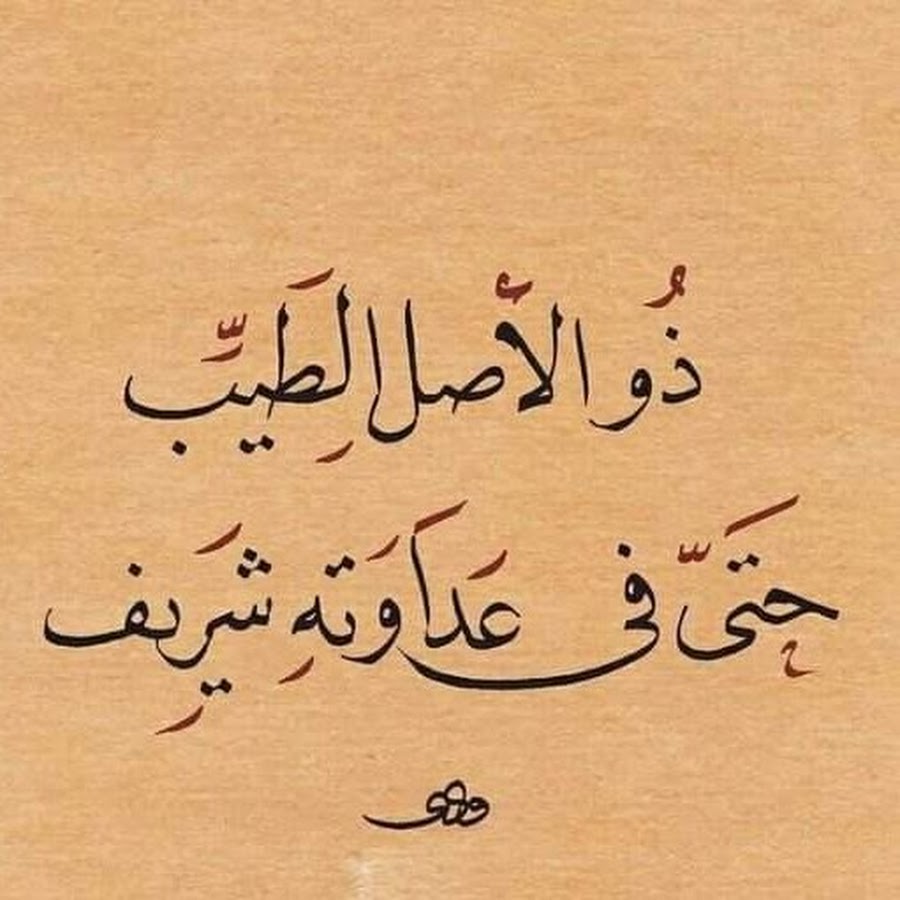 ذُو الأصلِ الطَيِّب
حَتَىّ في عَداَوَتهِ شَرِيف